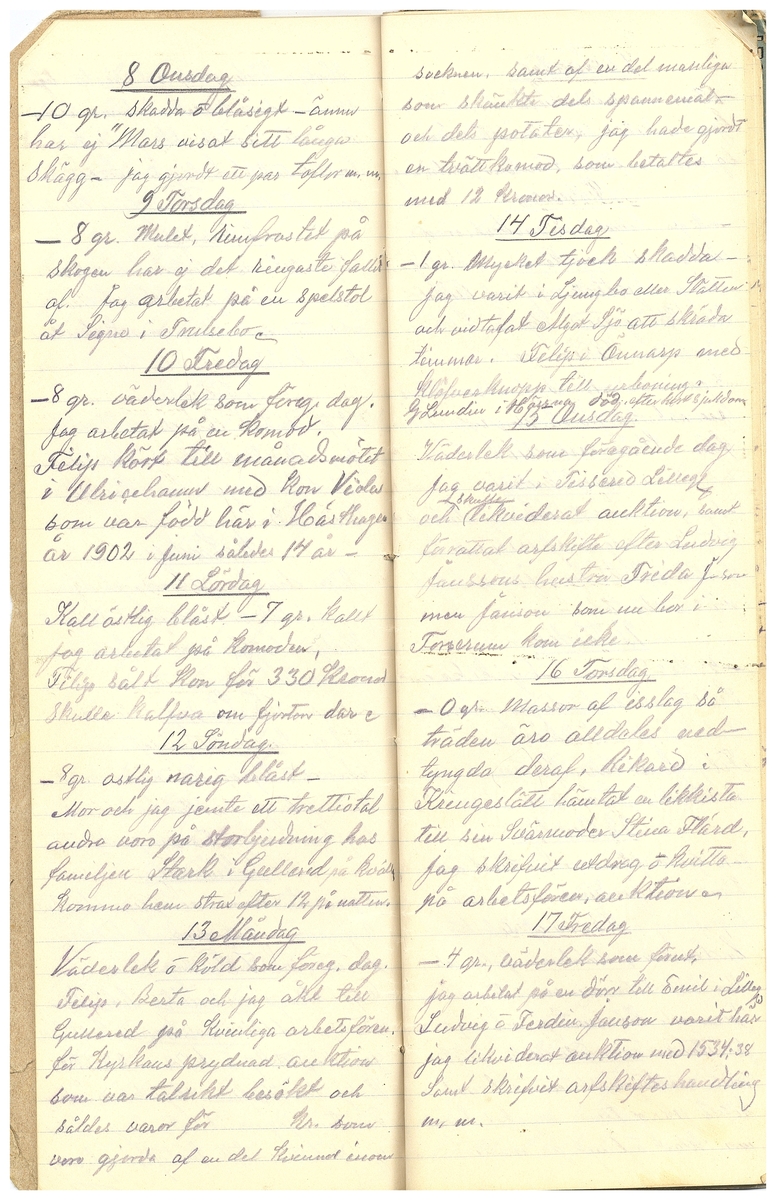 8 Onsdag
-10 gr. skadda o blåsigt - ännu
har ej "Mars visat sitt långa
skägg - jag gjordt ett par toflor m. m.
9 Torsdag
- 8 gr. Mulet, rimfrostet på
skogen har ej det ringaste fallit
af. Jag arbetat på en spelstol
åt Signe i
10 Fredag
-8 gr. väderlek som föreg. dag.
Jag arbetat på en Komod.
Filip kört till månadsmötet
i Ulricehamn med kon Viola
som var född här i Hästhagen
år 1902 i juni således 14 år -
11 Lördag
Kall östlig blåst -7 gr. kallt
jag arbetat på Komoden,
Filip sålt Kon för 330 Kronor
skulle kalfva om fjorton dar
12 Söndag
-8 gr ostlig narig blåst -
Mor och jag jemte ett trettiotal
andra voro på storbjudning hos
familjen Stark i Gullered på kväll
kommo hem strax efter 12 på natten.
13 Måndag
Väderlek o köld som föreg. dag.
Filip, Berta och jag åkt till
Gullered på Kvinliga arbetsfören.
för Kyrkans prydnad auktion
som var talrikt besökt och
såldes varor för kr. som
voro gjorda af en del kvinnor inom
socknen. samt af en del manliga
som skänkte dels spannemål
och dels potater, jag hade gjordt
en tvättkomod, som betaltes
med 12 Kronor.
14 Tisdag
-1 gr. Mycket tjock skadda -
jag varit i Ljungbo eller Slätten
och vidtalat Alger Sjö att skräda
timmer. Filip i Önnarp med
till
G Lundin i död efter kort sjukdom
15 Onsdag.
Väderlek som föregående dag
jag varit i Tissered Lilleg
och skulle likviderat auktion, samt
förrättat arfskifte efter Ludvig
Jånssons hustru Freda J-son
men Jånson som nu bor i
Forserum kom icke
16 Torsdag
- 0 gr. Massor af isslag så
träden äro alldeles ned-
tyngda deraf, Rikard i
Krengeslätt hämtat en likkista
till sin Svärmoder Stina Hård,
jag skrifvit utdrag o kvitto
på arbetsfören, auktion
17 Fredag
- 4 gr., väderlek som förut,
jag arbetat på en dörr till Emil i Lilleg
Ludvig o Ferdin. Jånson varit här
jag likviderat auktion med 1534,38
Samt skrifvit arfskifteshandling
m. m.